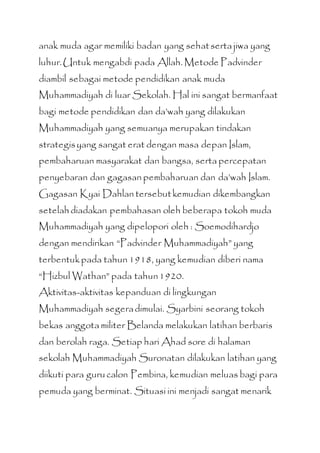 anak muda agar memiliki badan yang sehat serta jiwa yang
luhur. Untuk mengabdi pada Allah. Metode Padvinder
diambil sebagai metode pendidikan anak muda
Muhammadiyah di luar Sekolah. Hal ini sangat bermanfaat
bagi metode pendidikan dan da'wah yang dilakukan
Muhammadiyah yang semuanya merupakan tindakan
strategis yang sangat erat dengan masa depan Islam,
pembaharuan masyarakat dan bangsa, serta percepatan
penyebaran dan gagasan pembaharuan dan da'wah Islam.
Gagasan Kyai Dahlan tersebut kemudian dikembangkan
setelah diadakan pembahasan oleh beberapa tokoh muda
Muhammadiyah yang dipelopori oleh : Soemodihardjo
dengan mendirikan "Padvinder Muhammadiyah" yang
terbentuk pada tahun 1918, yang kemudian diberi nama
"Hizbul Wathan" pada tahun 1920.
Aktivitas-aktivitas kepanduan di lingkungan
Muhammadiyah segera dimulai. Syarbini seorang tokoh
bekas anggota militer Belanda melakukan latihan berbaris
dan berolah raga. Setiap hari Ahad sore di halaman
sekolah Muhammadiyah Suronatan dilakukan latihan yang
diikuti para guru calon Pembina, kemudian meluas bagi para
pemuda yang berminat. Situasi ini menjadi sangat menarik